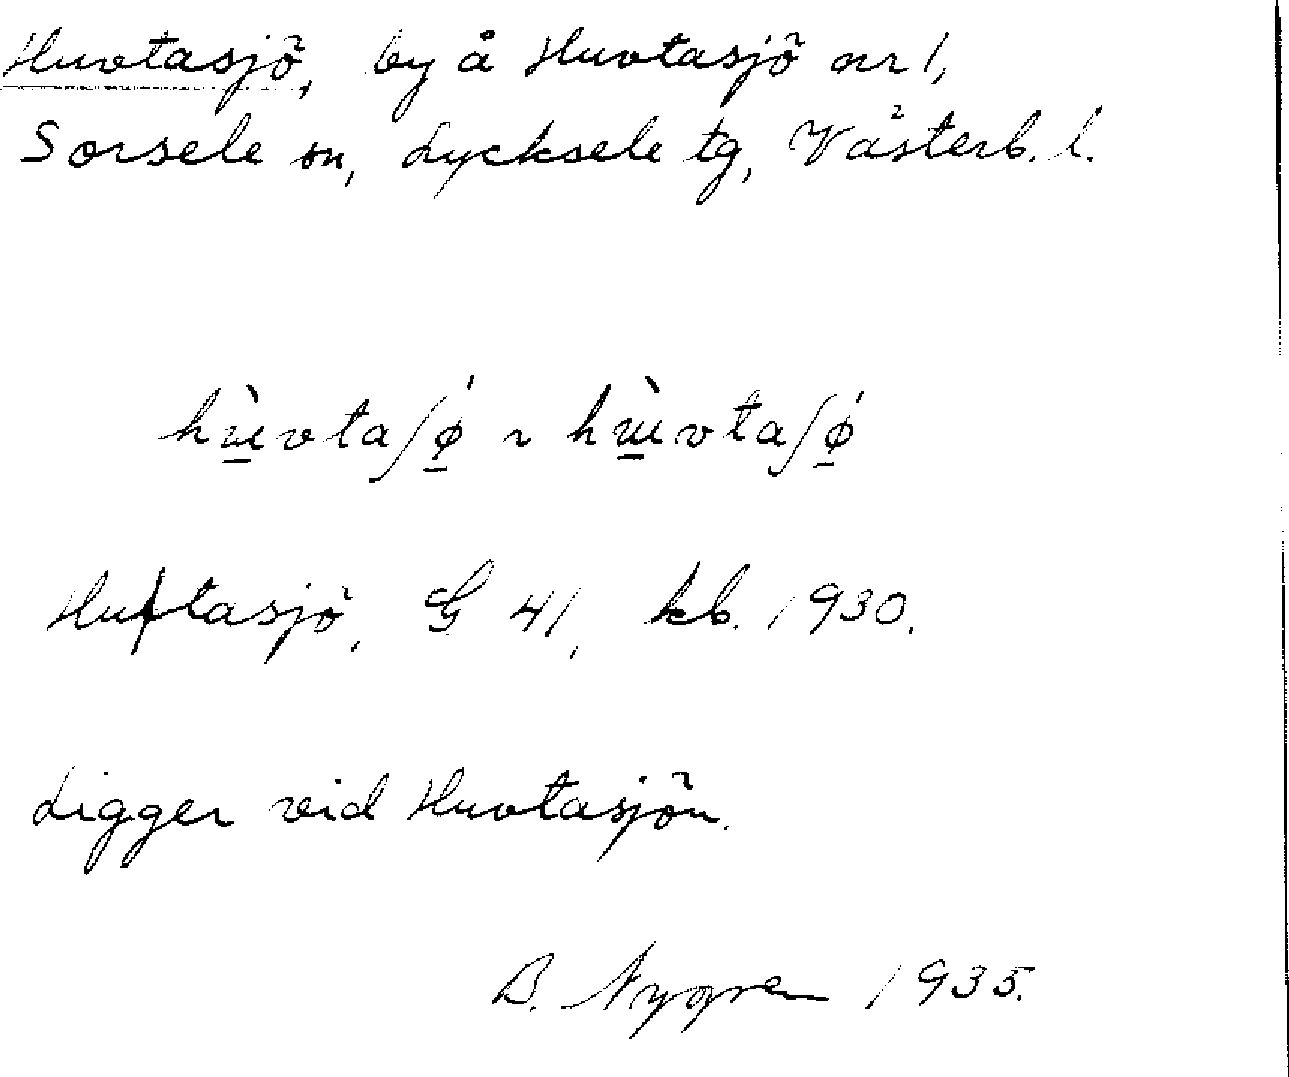 Huvtasjö, by å Huvtasjö nr 1,
Sorsele sn, Lycksele tg, Västerb. l.
Huftasjö, G 41, kb. 1930.
Ligger vid Huvtasjön.
B. Nygren 1935.